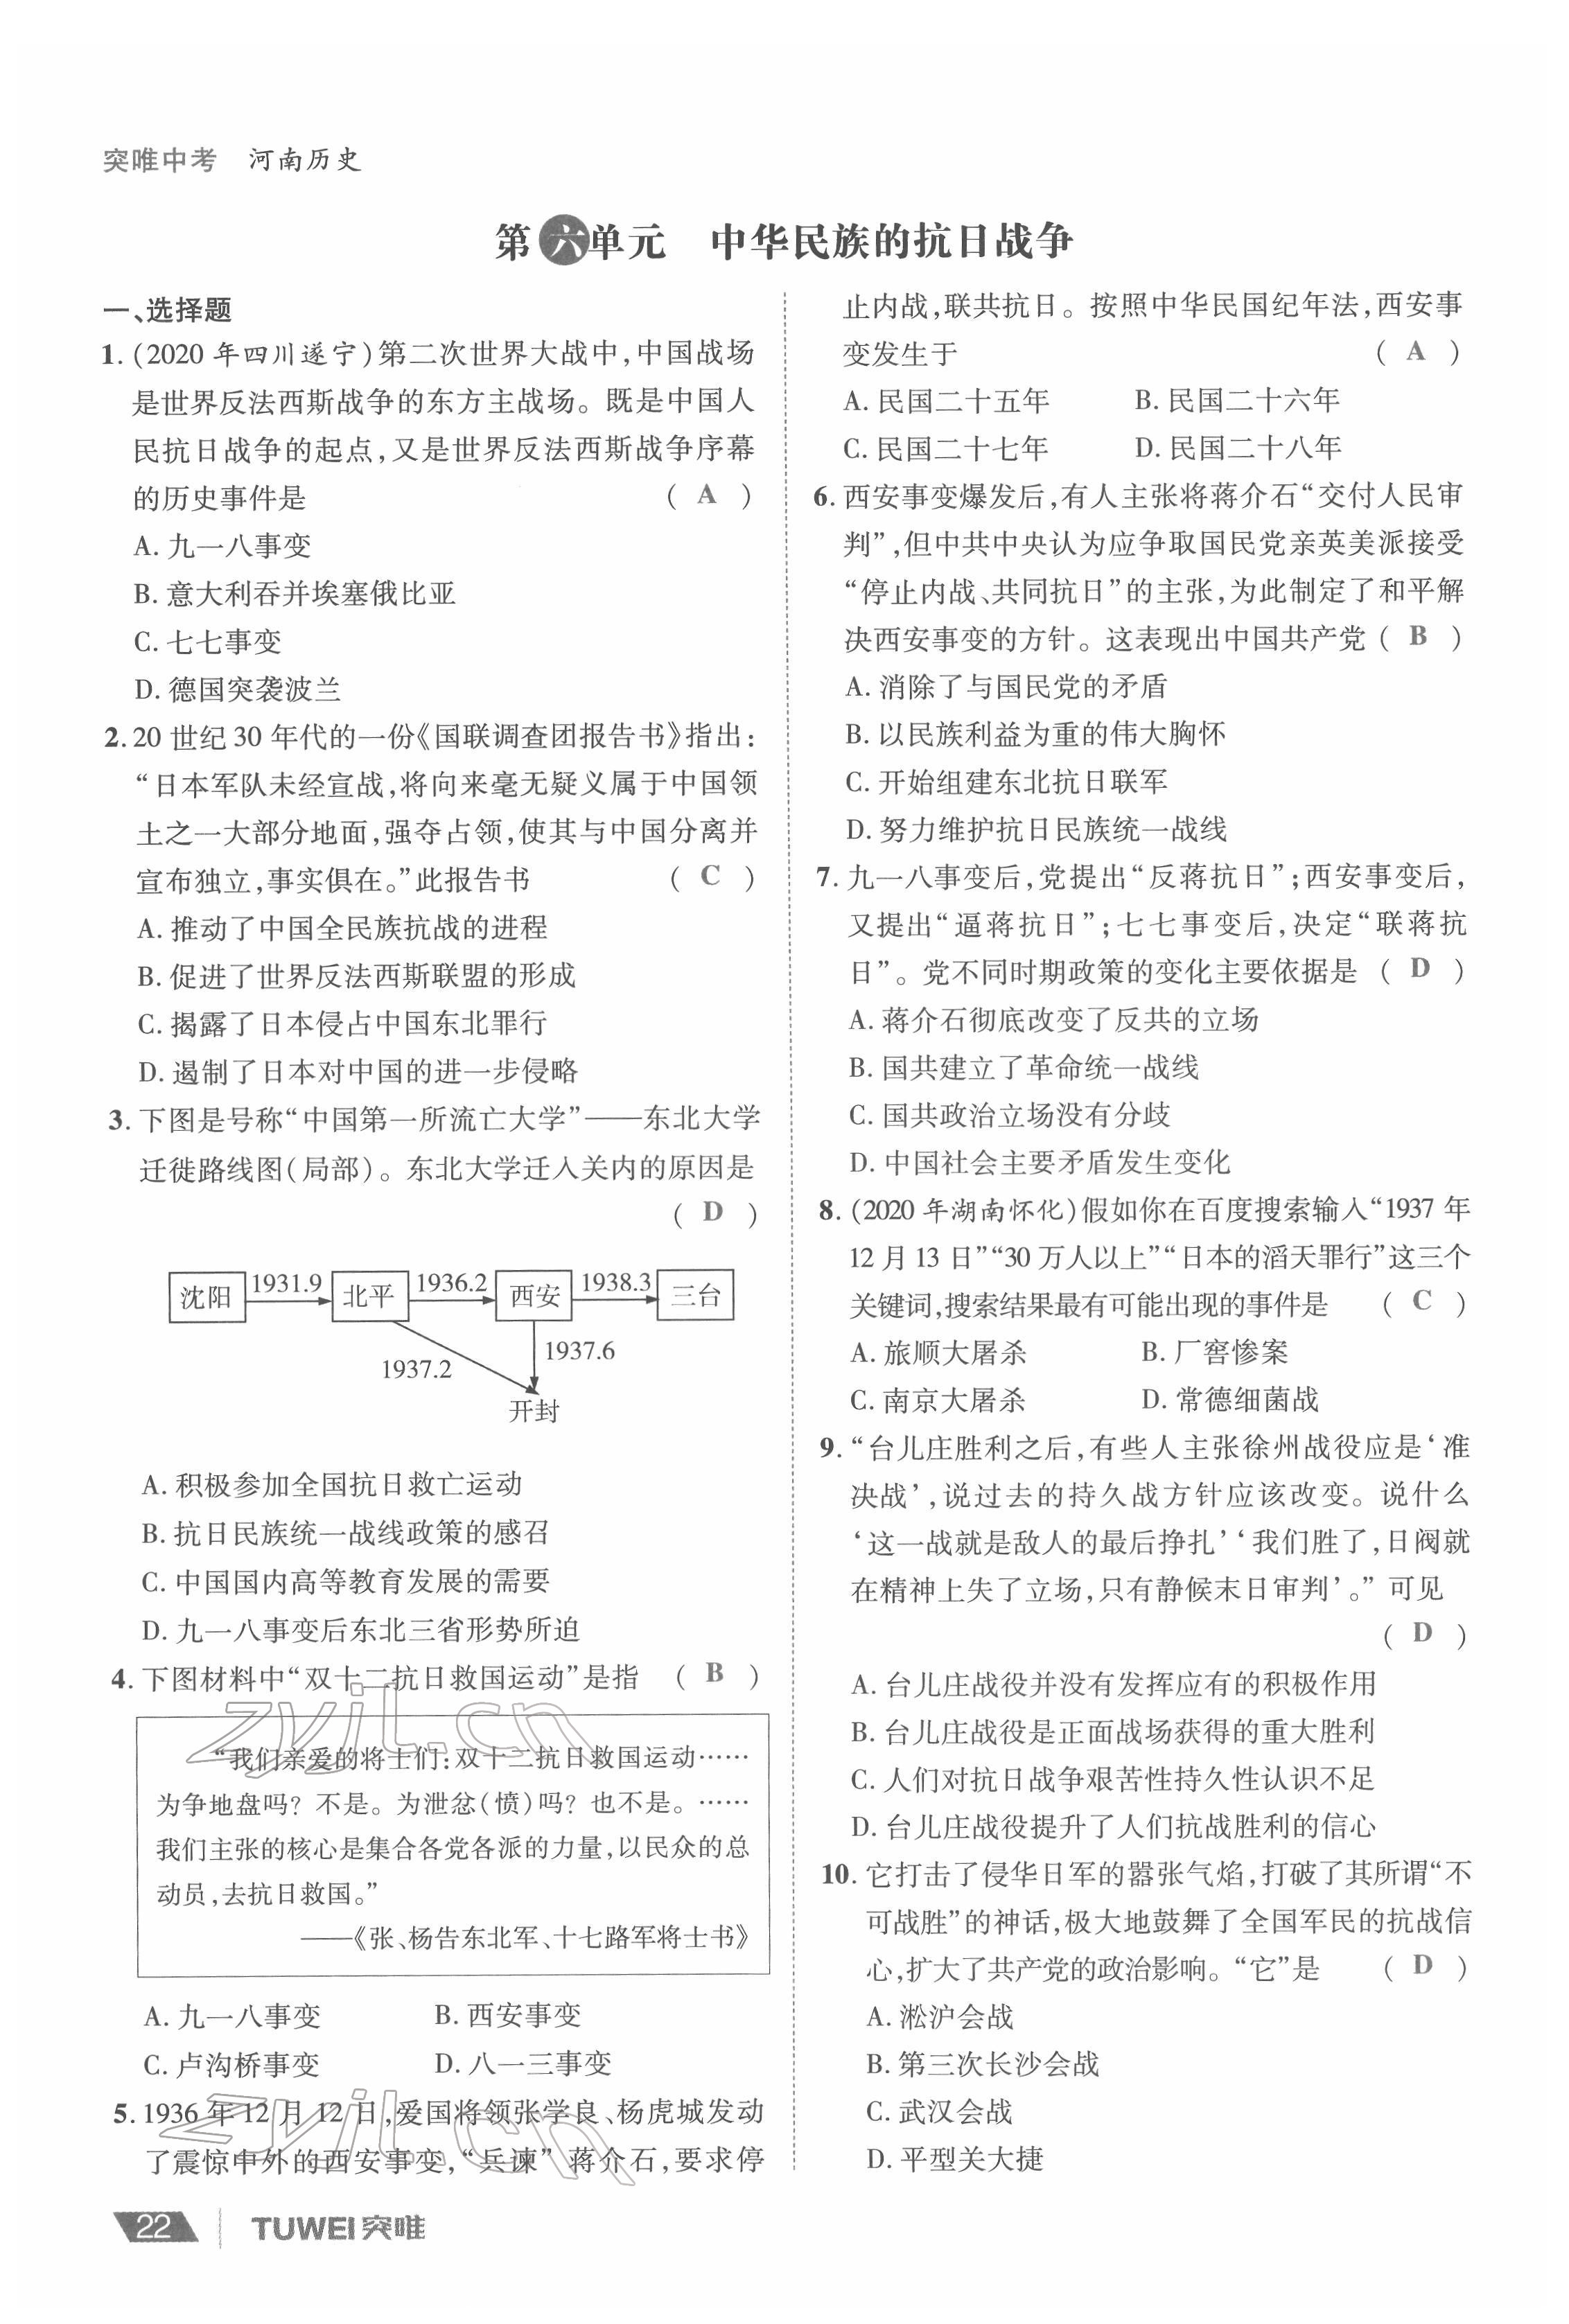 突唯中考 河南历史
第六单元 中华民族的抗日战争
一、选择题
1. (2020 年四川遂宁)第二次世界大战中,中国战场
是世界反法西斯战争的东方主战场。既是中国人
民抗日战争的起点,又是世界反法西斯战争序幕
的历史事件是 ( A )
A. 九一八事变
B. 意大利吞并埃塞俄比亚
C. 七七事变
D. 德国突袭波兰
2. 20 世纪 30 年代的一份《国联调查团报告书》指出:
“日本军队未经宣战,将向来毫无疑义属于中国领
土之一大部分地面,强夺占领,使其与中国分离并
宣布独立,事实俱在。”此报告书 ( C )
A. 推动了中国全民族抗战的进程
B. 促进了世界反法西斯联盟的形成
C. 揭露了日本侵占中国东北罪行
D. 遏制了日本对中国的进一步侵略
3. 下图是号称“中国第一所流亡大学”——东北大学
迁徙路线图(局部)。东北大学迁入关内的原因是
( D )
沈阳 1931.9 北平 1936.2 西安 1938.3 三台
1937.2 1937.6
开封
A. 积极参加全国抗日救亡运动
B. 抗日民族统一战线政策的感召
C. 中国国内高等教育发展的需要
D. 九一八事变后东北三省形势所迫
4. 下图材料中“双十二抗日救国运动”是指 ( B )
“我们亲爱的将士们:双十二抗日救国运动……
为争地盘吗? 不是。为泄忿(愤)吗? 也不是。……
我们主张的核心是集合各党各派的力量,以民众的总
动员,去抗日救国。”
——《张、杨告东北军、十七路军将士书》
A. 九一八事变 B. 西安事变
C. 卢沟桥事变 D. 八一三事变
5. 1936 年 12 月 12 日,爱国将领张学良、杨虎城发动
了震惊中外的西安事变,“兵谏”蒋介石,要求停
止内战,联共抗日。按照中华民国纪年法,西安事
变发生于 ( A )
A. 民国二十五年 B. 民国二十六年
C. 民国二十七年 D. 民国二十八年
6. 西安事变爆发后,有人主张将蒋介石“交付人民审
判”,但中共中央认为应争取国民党亲英美派接受
“停止内战、共同抗日”的主张,为此制定了和平解
决西安事变的方针。这表现出中国共产党 ( B )
A. 消除了与国民党的矛盾
B. 以民族利益为重的伟大胸怀
C. 开始组建东北抗日联军
D. 努力维护抗日民族统一战线
7. 九一八事变后,党提出“反蒋抗日”;西安事变后,
又提出“逼蒋抗日”;七七事变后,决定“联蒋抗
日”。党不同时期政策的变化主要依据是 ( D )
A. 蒋介石彻底改变了反共的立场
B. 国共建立了革命统一战线
C. 国共政治立场没有分歧
D. 中国社会主要矛盾发生变化
8. (2020 年湖南怀化)假如你在百度搜索输入“1937 年
12 月 13 日”“30 万人以上”“日本的滔天罪行”这三个
关键词,搜索结果最有可能出现的事件是 ( C )
A. 旅顺大屠杀 B. 厂窖惨案
C. 南京大屠杀 D. 常德细菌战
9. “台儿庄胜利之后,有些人主张徐州战役应是‘准
决战’,说过去的持久战方针应该改变。说什么
‘这一战就是敌人的最后挣扎’‘我们胜了,日阀就
在精神上失了立场,只有静候末日审判’。”可见
( D )
A. 台儿庄战役并没有发挥应有的积极作用
B. 台儿庄战役是正面战场获得的重大胜利
C. 人们对抗日战争艰苦性持久性认识不足
D. 台儿庄战役提升了人们抗战胜利的信心
10. 它打击了侵华日军的嚣张气焰,打破了其所谓“不
可战胜”的神话,极大地鼓舞了全国军民的抗战信
心,扩大了共产党的政治影响。“它”是 ( D )
A. 淞沪会战
B. 第三次长沙会战
C. 武汉会战
D. 平型关大捷
22 TUWEI突唯
zyjl.cn
zyjl.cn